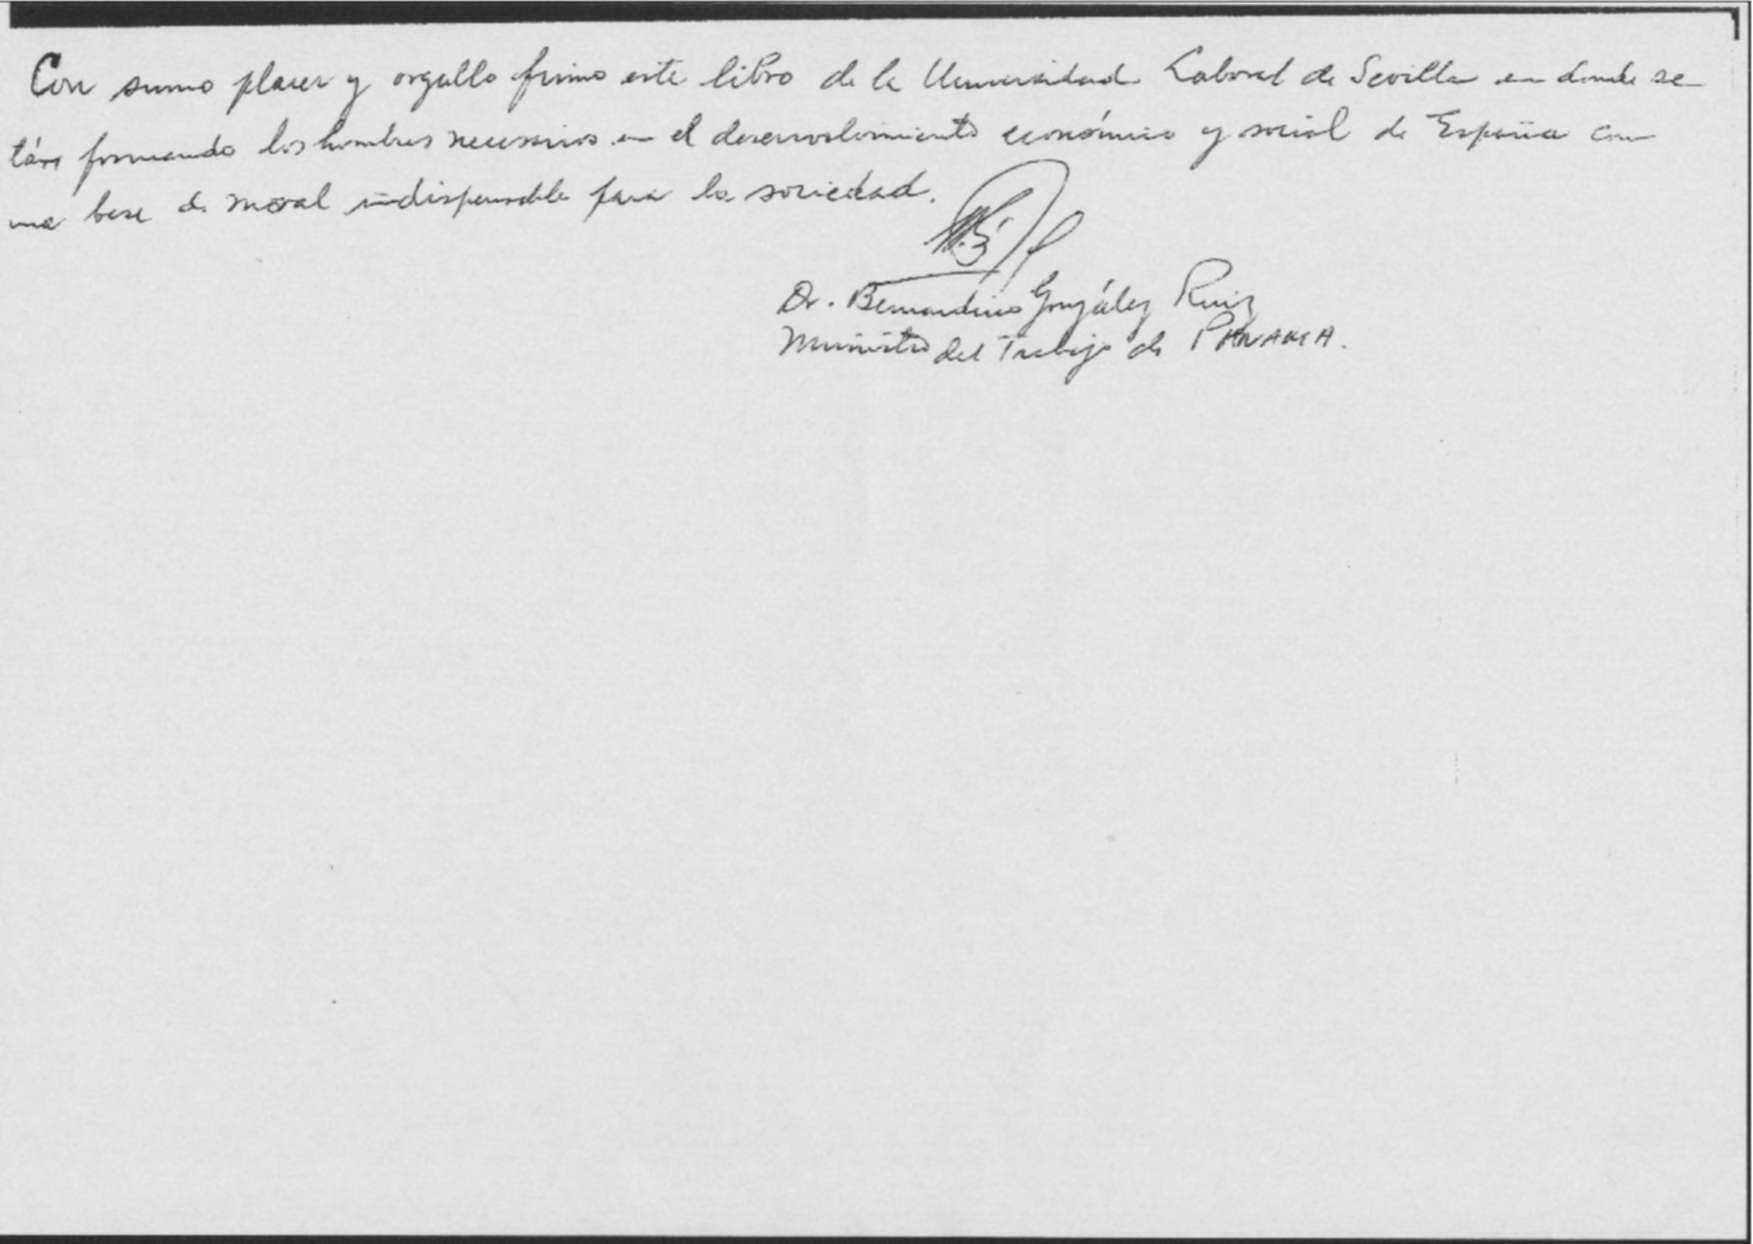 Con sumo placer y orgullo firmo este libro de la Universidad Laboral de Sevilla en donde se
tán formando los hombres necesarios en el desenvolvimiento económico y social de España con
una base de moral indispensable para la sociedad.
Dr. Bernardino González Ruiz
Ministro del Trabajo de PANAMA.